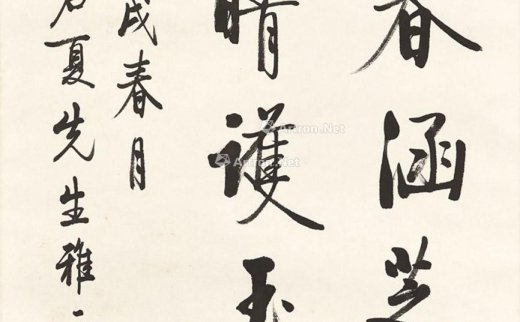 春涵芝
晴護玉
戌春月
夏先生雅
Artron.Net
Artron.Net